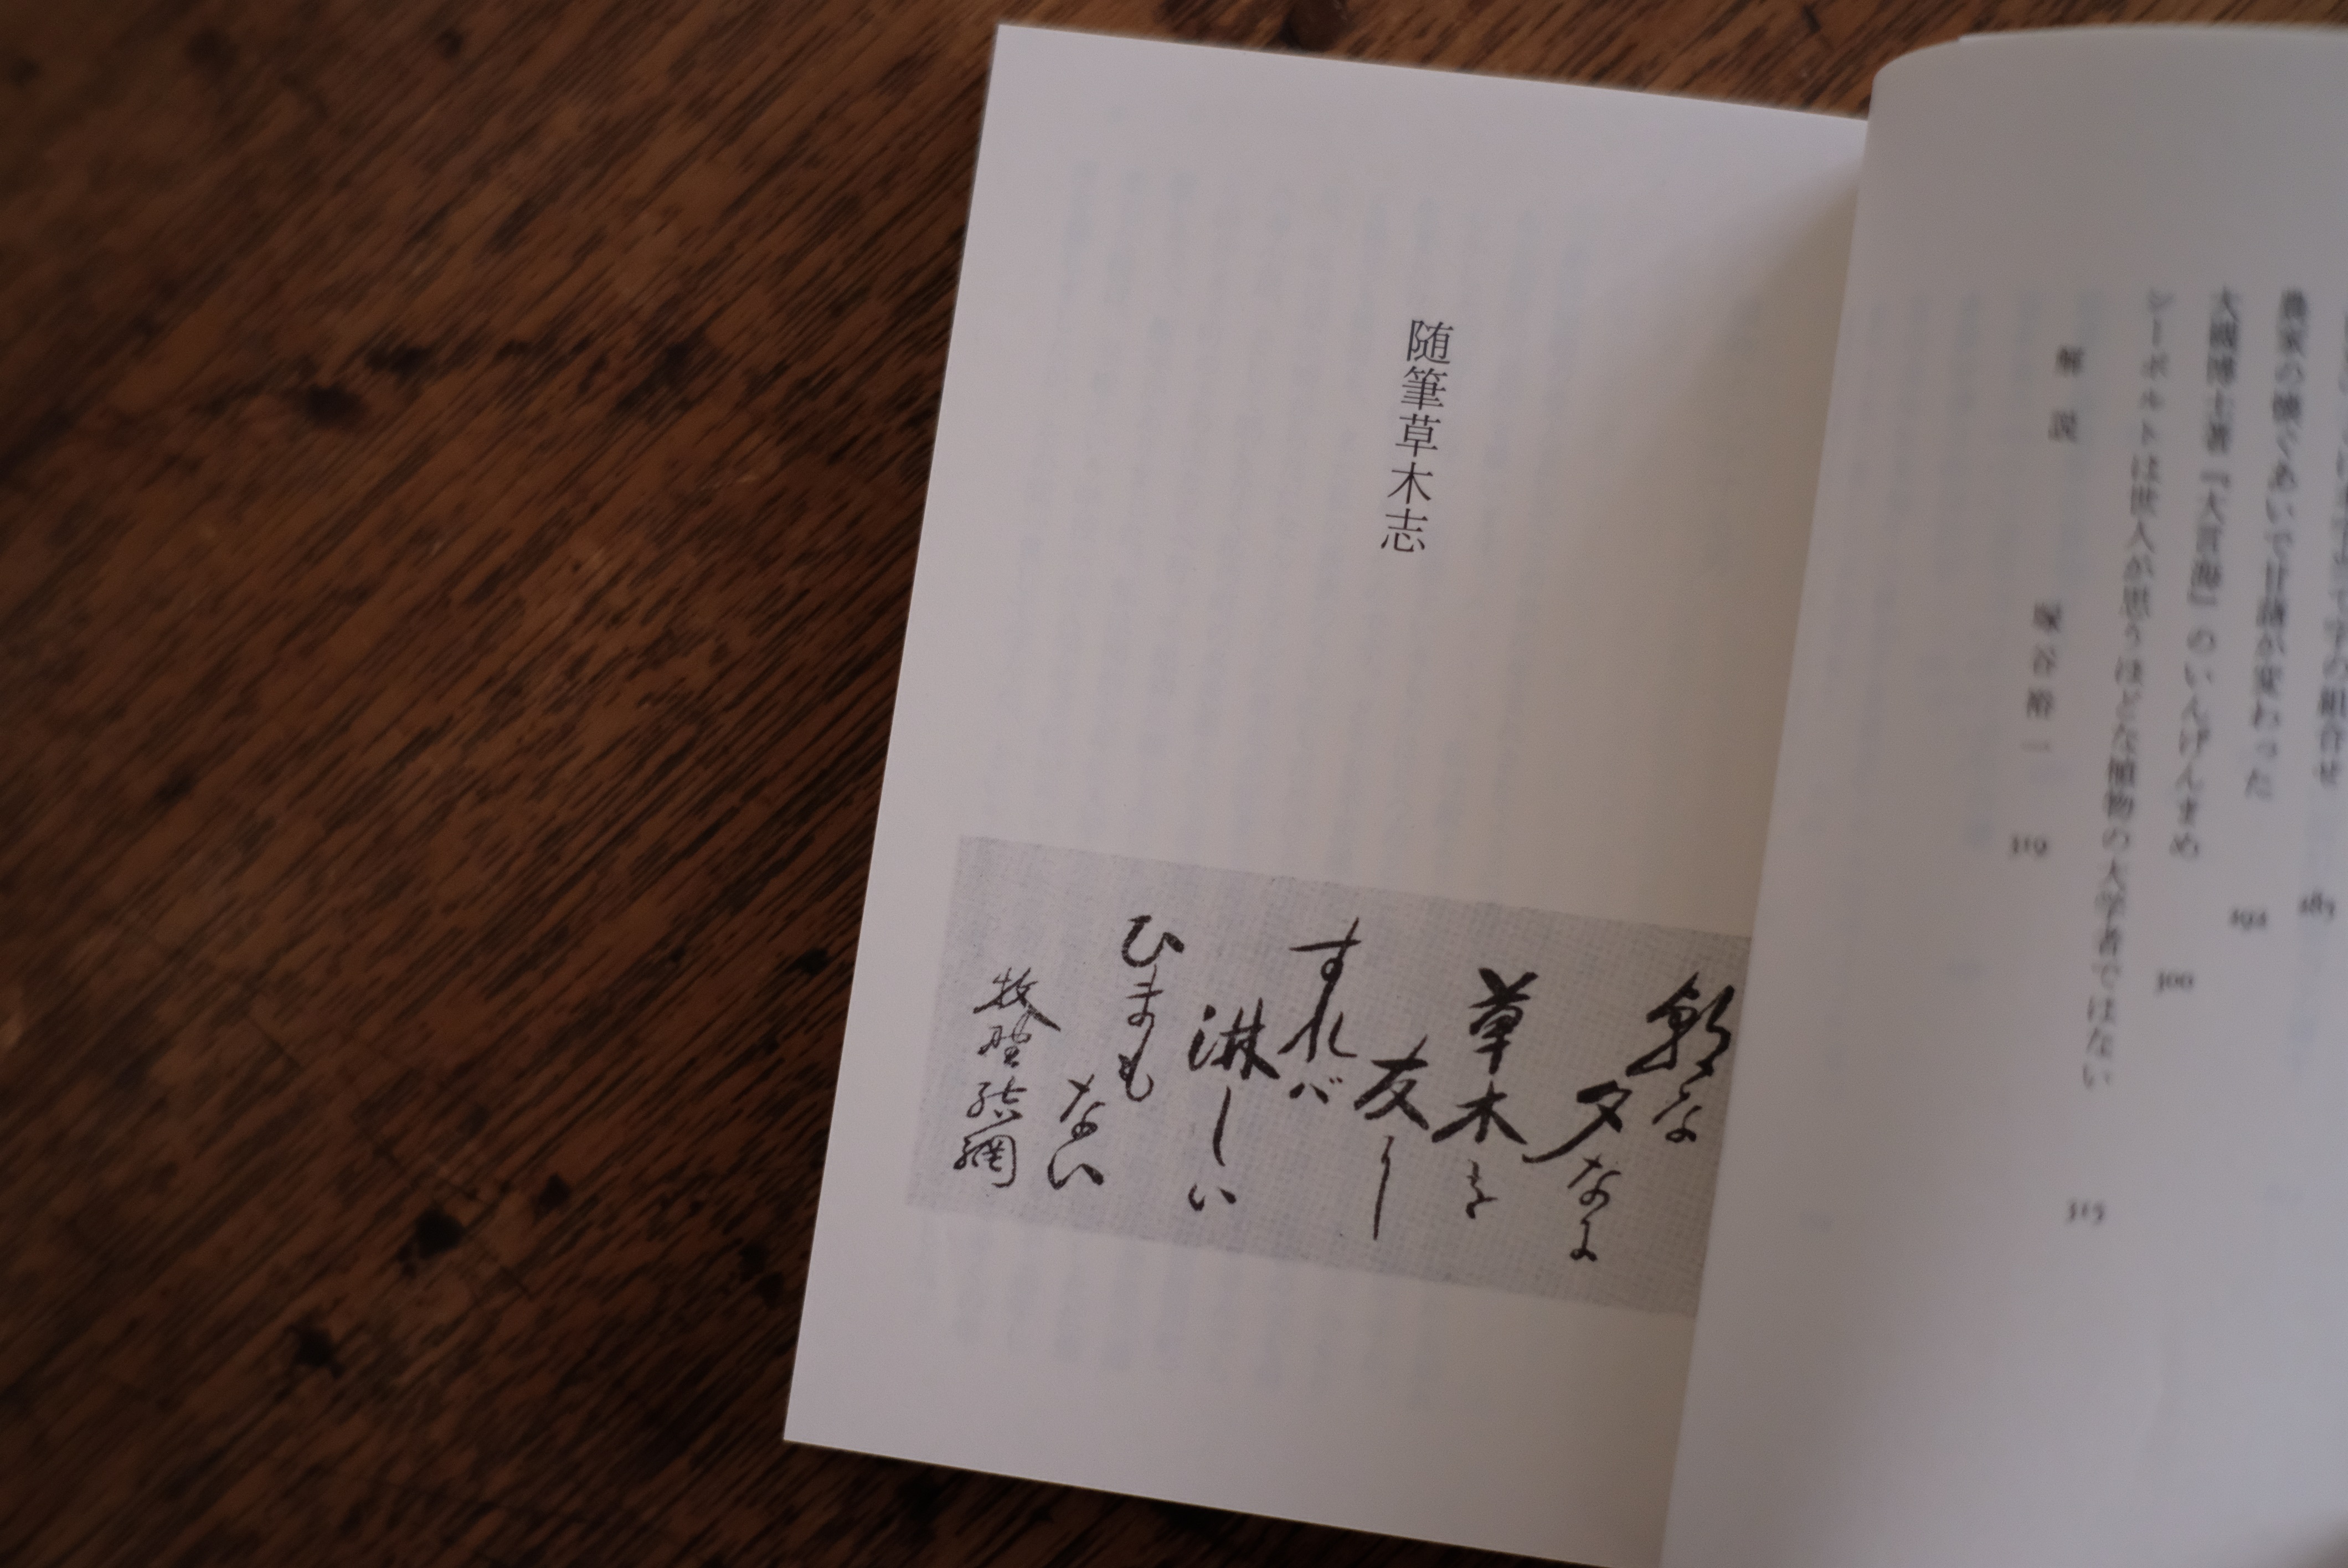 字の組合せ
農家の懐ぐあいで甘藷が変わった 292
大槻博士著『大言海』のいんげんまめ 300
シーボルトは世人が思うほどな植物の大学者ではない 315
解説 塚谷裕一 319
随筆草木志
朝な
夕なに
草木を
友に
すれば
淋しい
ひまも
ない
牧野結網